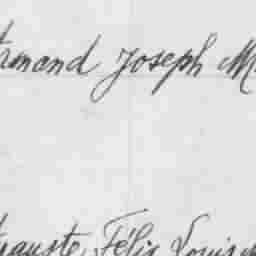 rmand Joseph M
guste, Félix Louis